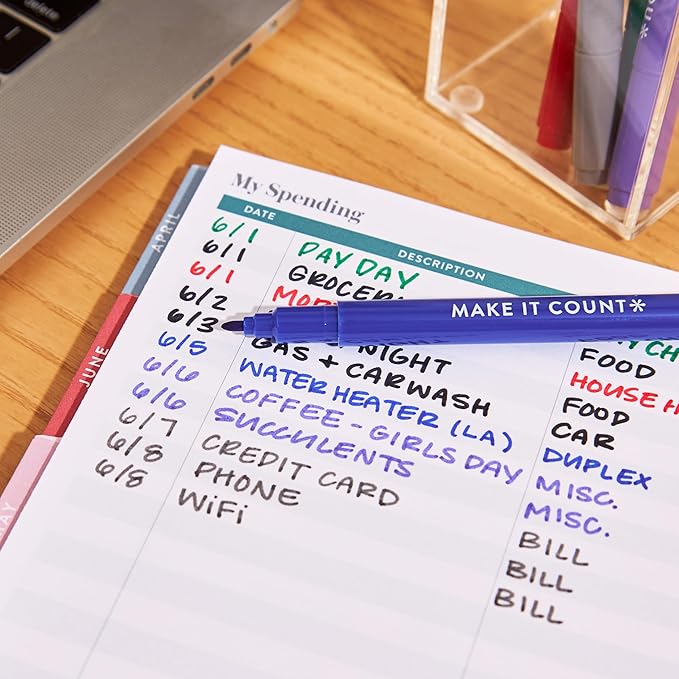 delete
My Spending
DATE DESCRIPTION
6/1 PAY DAY
6/1
6/1
6/2 NIGHT FOOD
6/3 GAS + CARWASH HOUSE
6/5 WATER HEATER (LA) FOOD
6/6 COFFEE - GIRLS DAY CAR
6/6 SUCCULENTS DUPLEX
6/7 CREDIT CARD MISC.
6/8 PHONE MISC.
6/8 WiFi BILL
BILL
BILL
MAKE IT COUNT*
APRIL
JUNE